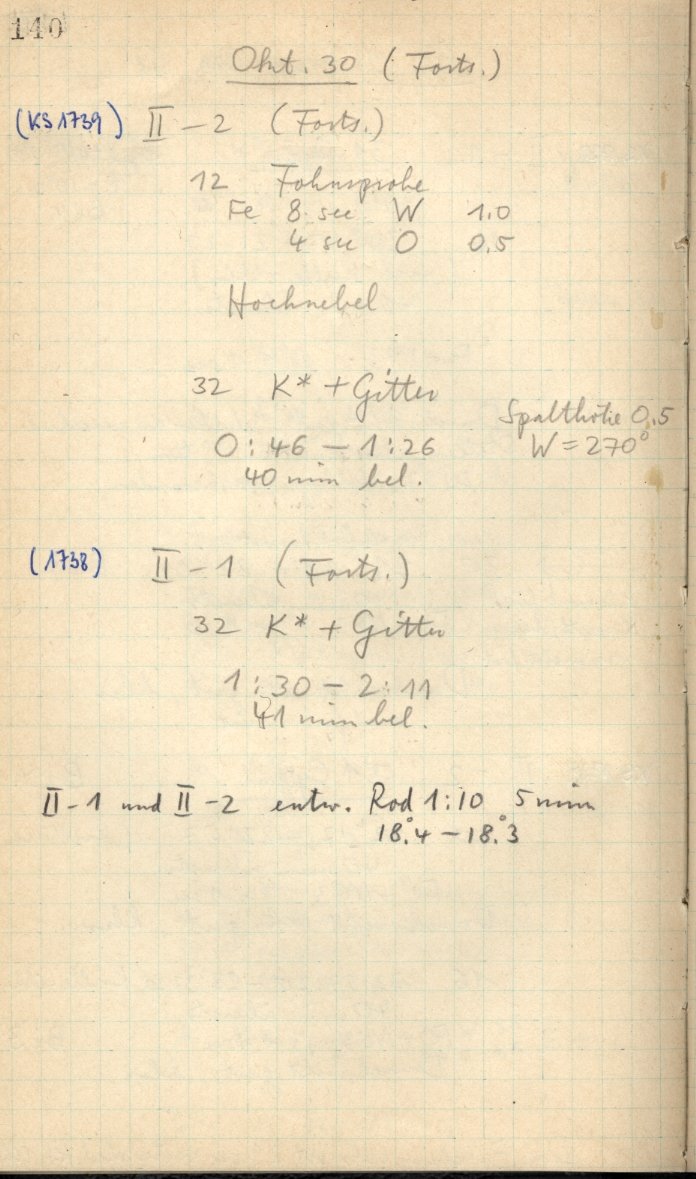 140
Okt. 30 (Forts.)
(KS 1739) II - 2 (Forts.)
12
Fe 8 sec W 1.0
4 sec O 0.5
Hochnebel
32 K* + Gitter
Spalthöhe 0.5
0:46 - 1:26
W = 270°
40 min bel.
(1738) II - 1 (Forts.)
32 K* + Gitter
1:30 - 2:11
41 min bel.
II-1 und II-2 entw. Rod 1:10 5 min
18°.4 - 18°.3